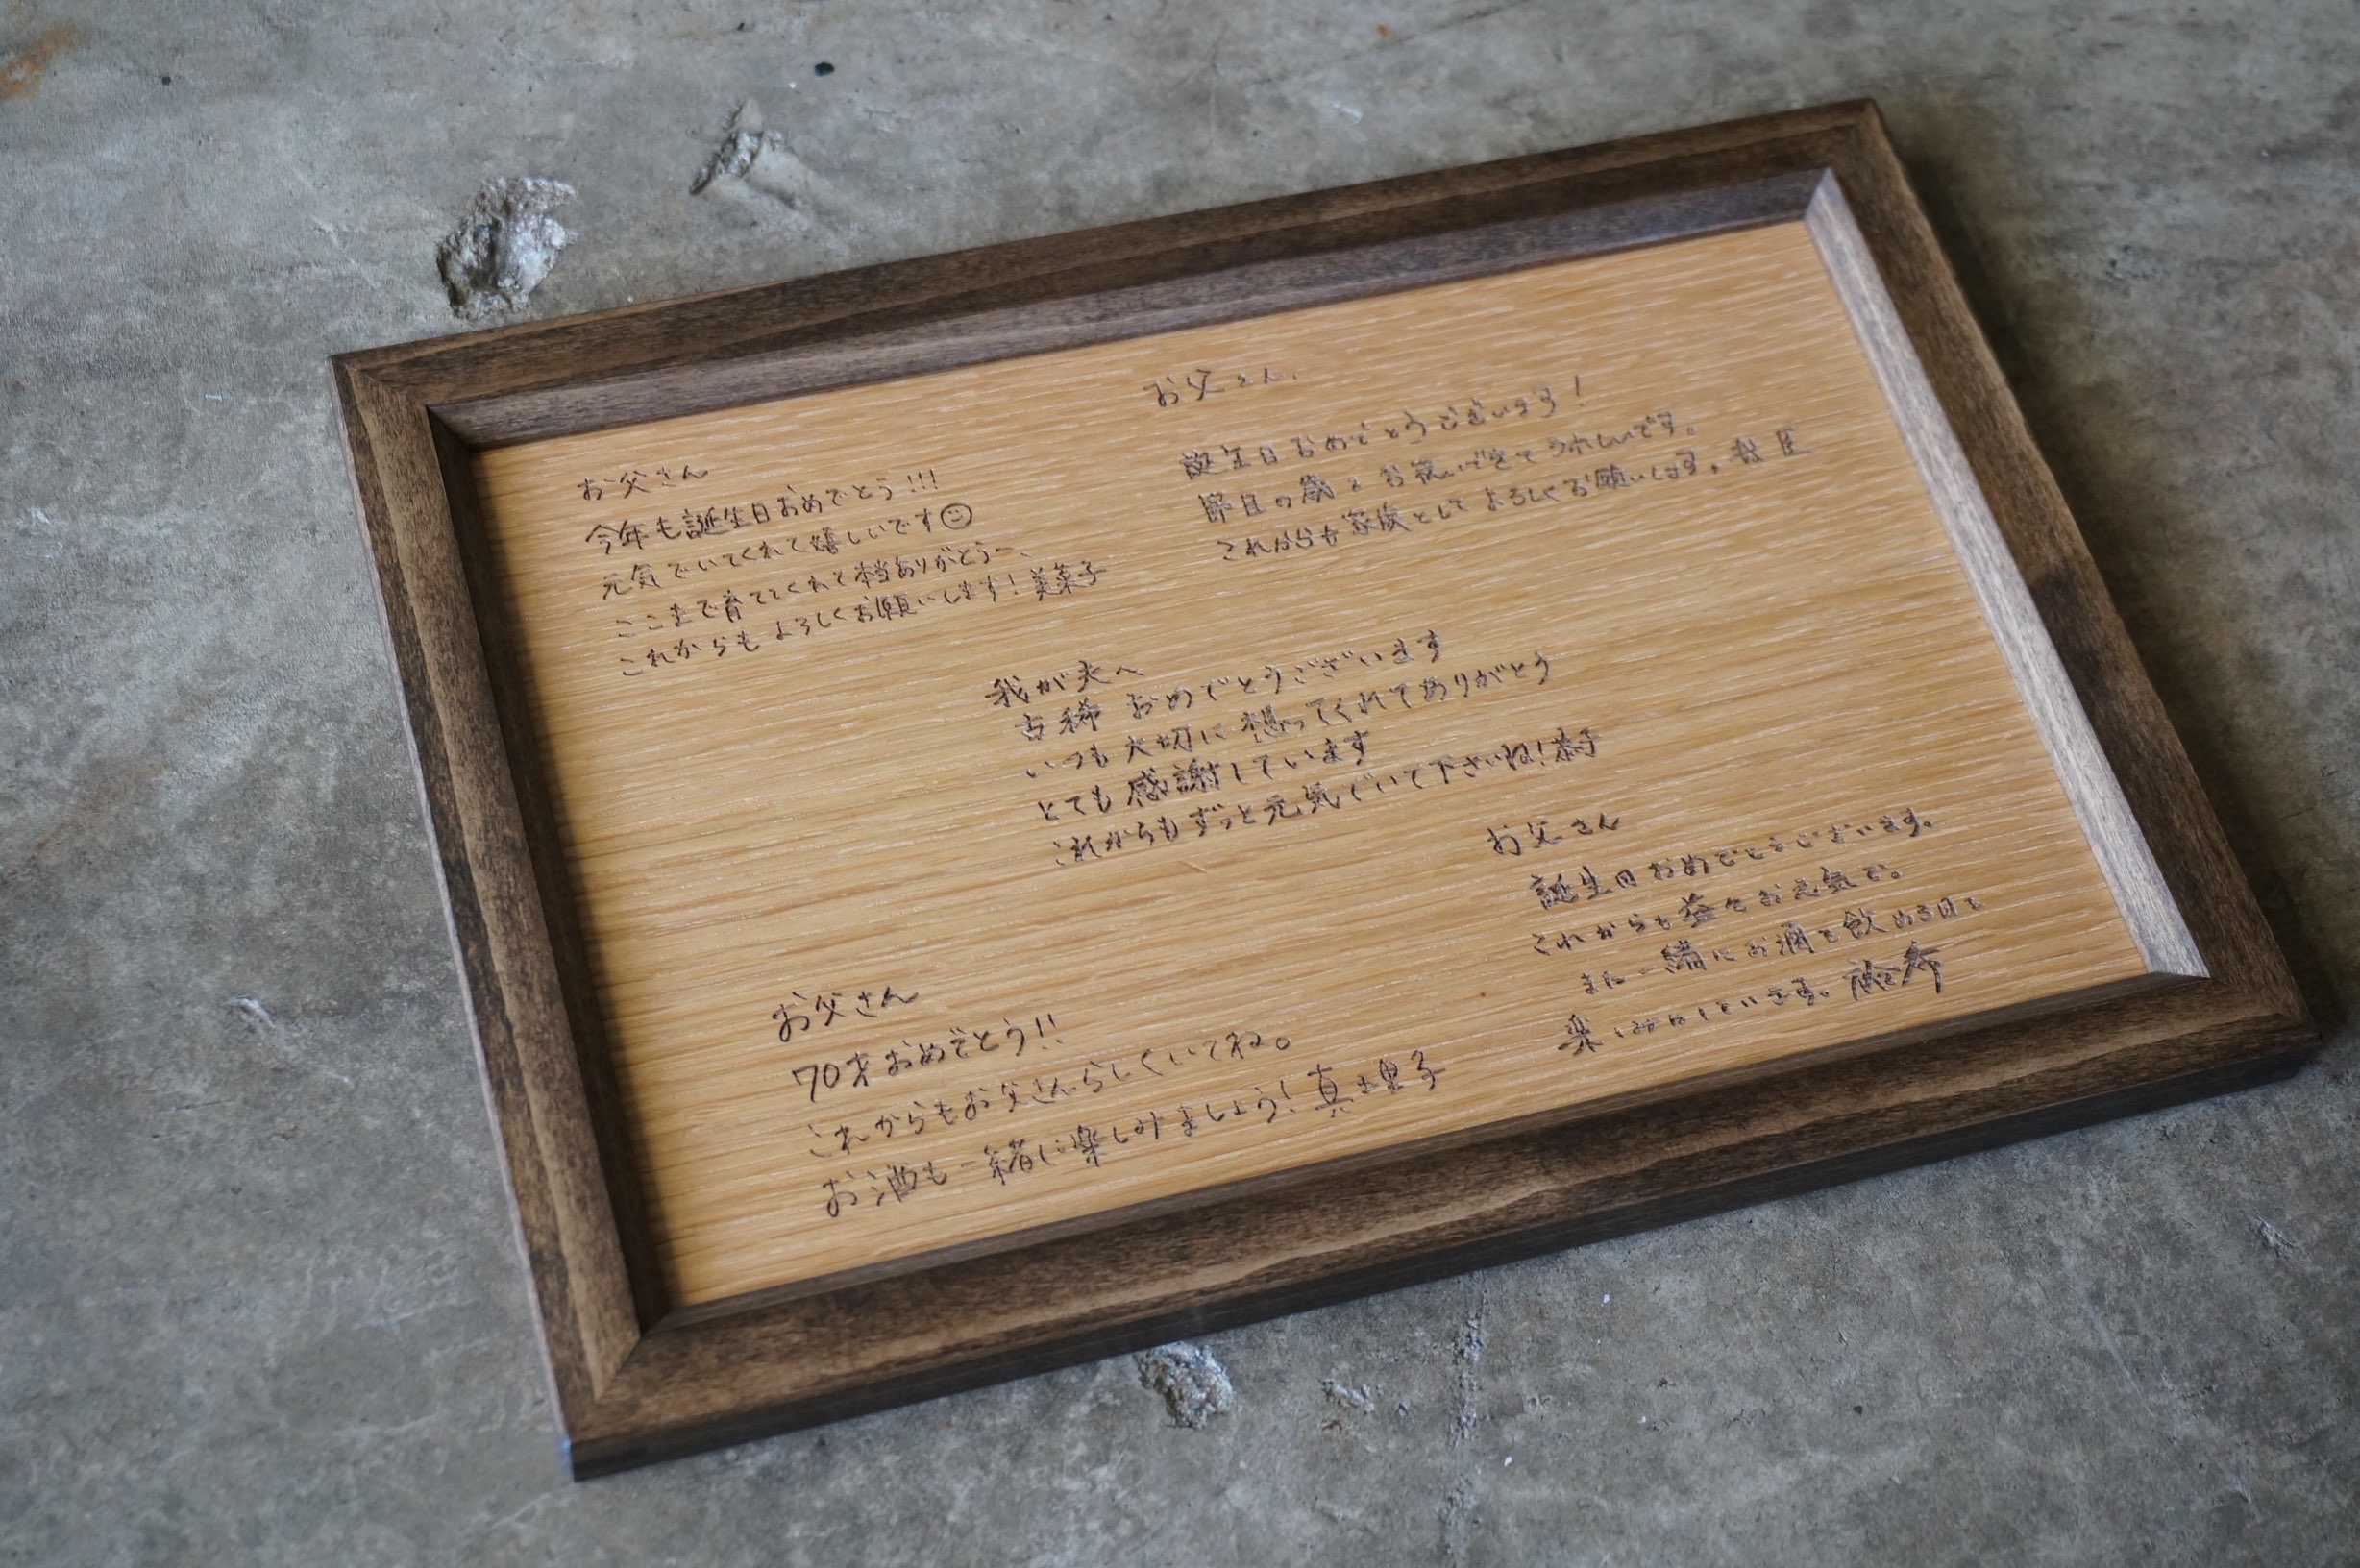 お父さん
今年も誕生日おめでとう!!!
元気でいてくれて嬉しいです☺
ここまで育ててくれて本当ありがとうー、
これからもよろしくお願いします!美菜子
お父さん、
誕生日おめでとうございます!
節目の歳をお祝いできてうれしいです。
これからも家族としてよろしくお願いします。
我が夫へ
古稀 おめでとうございます
いつも大切に想ってくれてありがとう
とても感謝しています
これからもずっと元気でいて下さいね!恭子
お父さん
70才おめでとう!!
これからもお父さんらしくいてね。
お酒も一緒に楽しみましょう!真土里子
お父さん
誕生日おめでとうございます。
これからも益々お元気で。
また一緒にお酒を飲める日を
楽しみにしています。